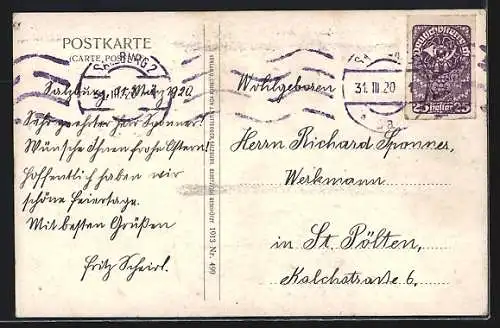 POSTKARTE
(CARTE POSTALE)
SALZBURG 2
31. III. 20
Salzburg, 31. März 1920.
Sehr geehrter Herr Sponner!
Wünsche Ihnen frohe Ostern!
Hoffentlich haben wir
schöne Feiertage.
Mit besten Grüßen
Fritz Scheirl.
1913 Nr. 499
Wohlgeboren
Herrn Richard Sponner,
Werkmann
in St. Pölten,
Kalchstraße 6.
31. III 20
Deutschösterreich
25 Heller 25